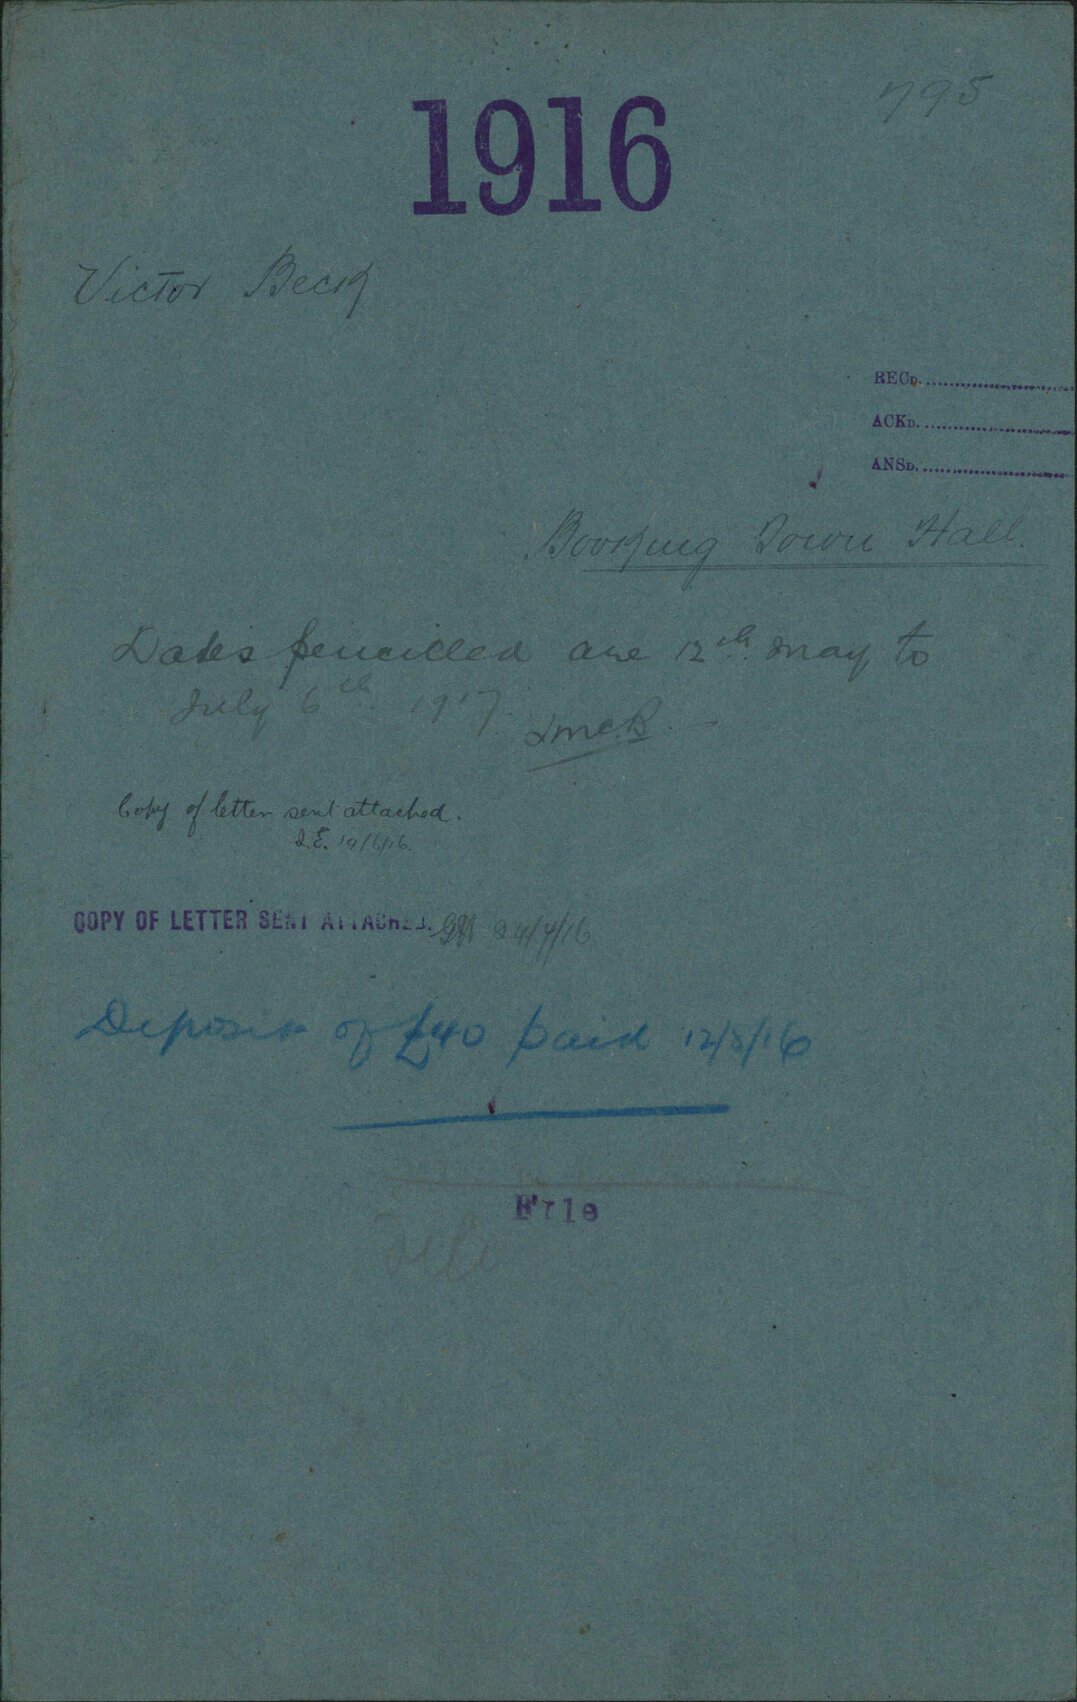 795
1916
Victor Beck
RECD.
ACKD.
ANSD.
Booking Town Hall.
Dates pencilled are 12th May to
July 6th 1917.
Copy of letter sent attached.
19/6/16.
COPY OF LETTER SENT ATTACHED. 24/7/16.
Deposit of £40 paid 12/8/16
File
File